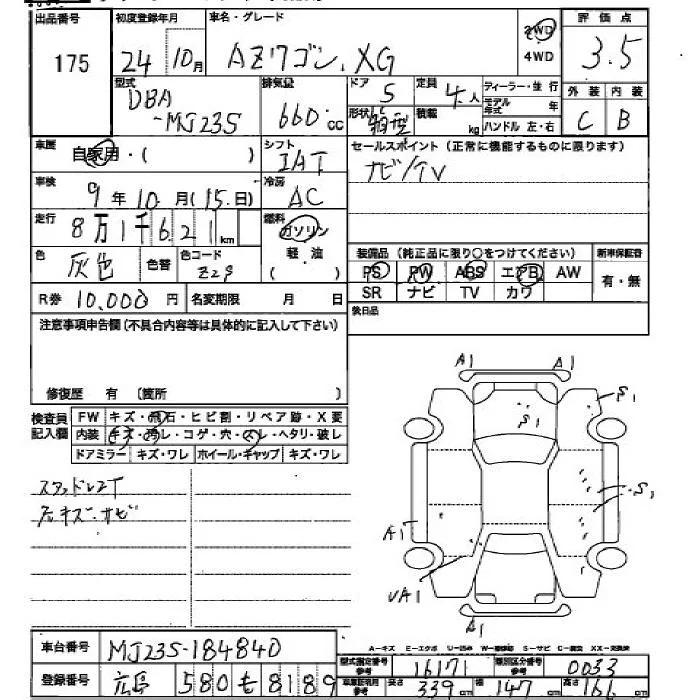 出品番号 初度登録年月 車名・グレード 2WD 4WD 評価点
175 24 10月 AZワゴン XG 3.5
型式 DBA -MJ23S 排気量 660 cc ドア 5 形状 箱型 定員 4人 積載 kg ディーラー・並行 モデル年式 年 ハンドル 左・右 外装 C 内装 B
車歴 自家用・( ) シフト IAT セールスポイント(正常に機能するものに限ります)
車検 9年10月(15日) 冷房 AC ナビ/TV
走行 8万1千621km 燃料 ガソリン 軽・油 ( )
色 灰色 色替 色コード Z2S 装備品(純正品に限り○をつけてください) 新車保証書
PS PW ABS エアB AW 有・無
SR ナビ TV カワ
R券 10,000円 名変期限 月 日 後日品
注意事項申告欄(不具合内容等は具体的に記入して下さい)
修復歴 有 〔箇所 〕
検査員記入欄 FW キズ・飛石・ヒビ割・リペア跡・X変
内装 キズ・汚レ・コゲ・穴・スレ・ヘタリ・破レ
ドアミラー キズ・ワレ ホイール・ギャップ キズ・ワレ
スタッドレスT
キズ・サビ
A1 A1
S1
S1
A1
UA1
A1
A-キズ E-エクボ U-凹み W-補修跡 S-サビ C-腐食 XX-交換済
車台番号 MJ23S-184840
登録番号 広島 580 も 8189
型式指定番号 参考 16171 類別区分番号 参考 0033
車庫証明用 参考 長さ 339cm 幅 147cm 高さ 166cm